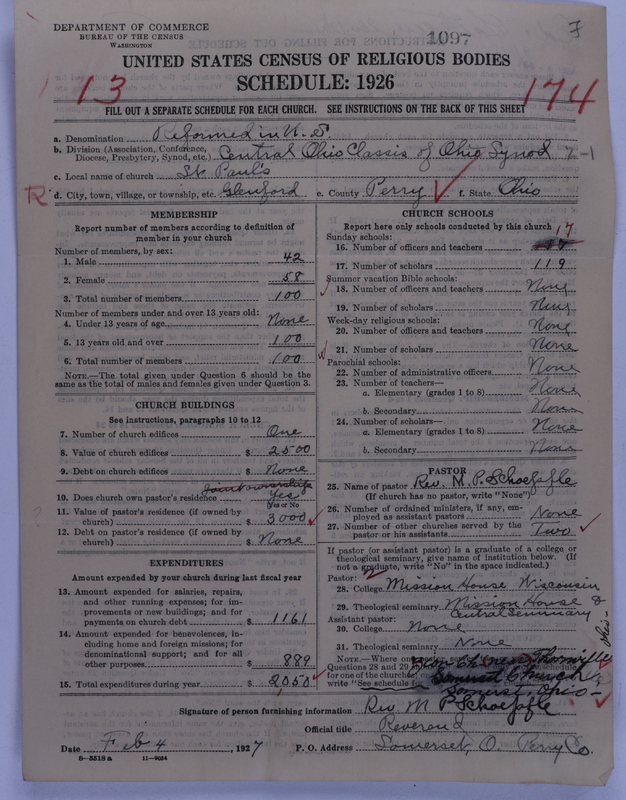 DEPARTMENT OF COMMERCE
BUREAU OF THE CENSUS
WASHINGTON
1097
7
UNITED STATES CENSUS OF RELIGIOUS BODIES
SCHEDULE: 1926
13
174
FILL OUT A SEPARATE SCHEDULE FOR EACH CHURCH. SEE INSTRUCTIONS ON THE BACK OF THIS SHEET
a. Denomination Reformed in U. S.
b. Division (Association, Conference, Diocese, Presbytery, Synod, etc.) Central Ohio Classis of Ohio Synod 7-1
c. Local name of church St. Paul's
R. d. City, town, village, or township, etc. Glenford e. County Perry f. State Ohio
MEMBERSHIP
Report number of members according to definition of
member in your church
Number of members, by sex:
1. Male 42
2. Female 58
3. Total number of members 100
Number of members under and over 13 years old:
4. Under 13 years of age None
5. 13 years old and over 100
6. Total number of members 100
NOTE.—The total given under Question 6 should be the
same as the total of males and females given under Question 3.
CHURCH BUILDINGS
See instructions, paragraphs 10 to 12
7. Number of church edifices One
8. Value of church edifices $ 2500
9. Debt on church edifices $ None
Joint ownership
10. Does church own pastor's residence Yes
(Yes or No)
11. Value of pastor's residence (if owned by
church) $ 3000
12. Debt on pastor's residence (if owned by
church) $ None
EXPENDITURES
Amount expended by your church during last fiscal year
13. Amount expended for salaries, repairs,
and other running expenses; for im-
provements or new buildings; and for
payments on church debt $ 1161
14. Amount expended for benevolences, in-
cluding home and foreign missions; for
denominational support; and for all
other purposes $ 889
15. Total expenditures during year $ 2050
CHURCH SCHOOLS
Report here only schools conducted by this church
Sunday schools: 17
16. Number of officers and teachers 17
17. Number of scholars 119
Summer vacation Bible schools:
18. Number of officers and teachers None
19. Number of scholars None
Week-day religious schools:
20. Number of officers and teachers None
21. Number of scholars None
Parochial schools:
22. Number of administrative officers None
23. Number of teachers—
a. Elementary (grades 1 to 8) None
b. Secondary None
24. Number of scholars—
a. Elementary (grades 1 to 8) None
b. Secondary None
PASTOR
25. Name of pastor Rev. M. P. Schoepfle
(If church has no pastor, write "None")
26. Number of ordained ministers, if any, em-
ployed as assistant pastors None
27. Number of other churches served by the
pastor or his assistants Two
If pastor (or assistant pastor) is a graduate of a college or
theological seminary, give name of institution below. (If
not a graduate, write "No" in the space indicated.)
Pastor: 2
28. College Mission House Wisconsin
29. Theological seminary Mission House &
Central Seminary
Assistant pastor:
30. College None
31. Theological seminary None
NOTE.—Where one
Questions 28 and 29
for one of the churches
write "See schedule for
Somerset Church
Somerset, Ohio
Signature of person furnishing information Rev M P Schoepfle
Official title Reverend
Date Feb 4, 1927 P. O. Address Somerset, O. Perry Co.
8—5518 a 11—9054